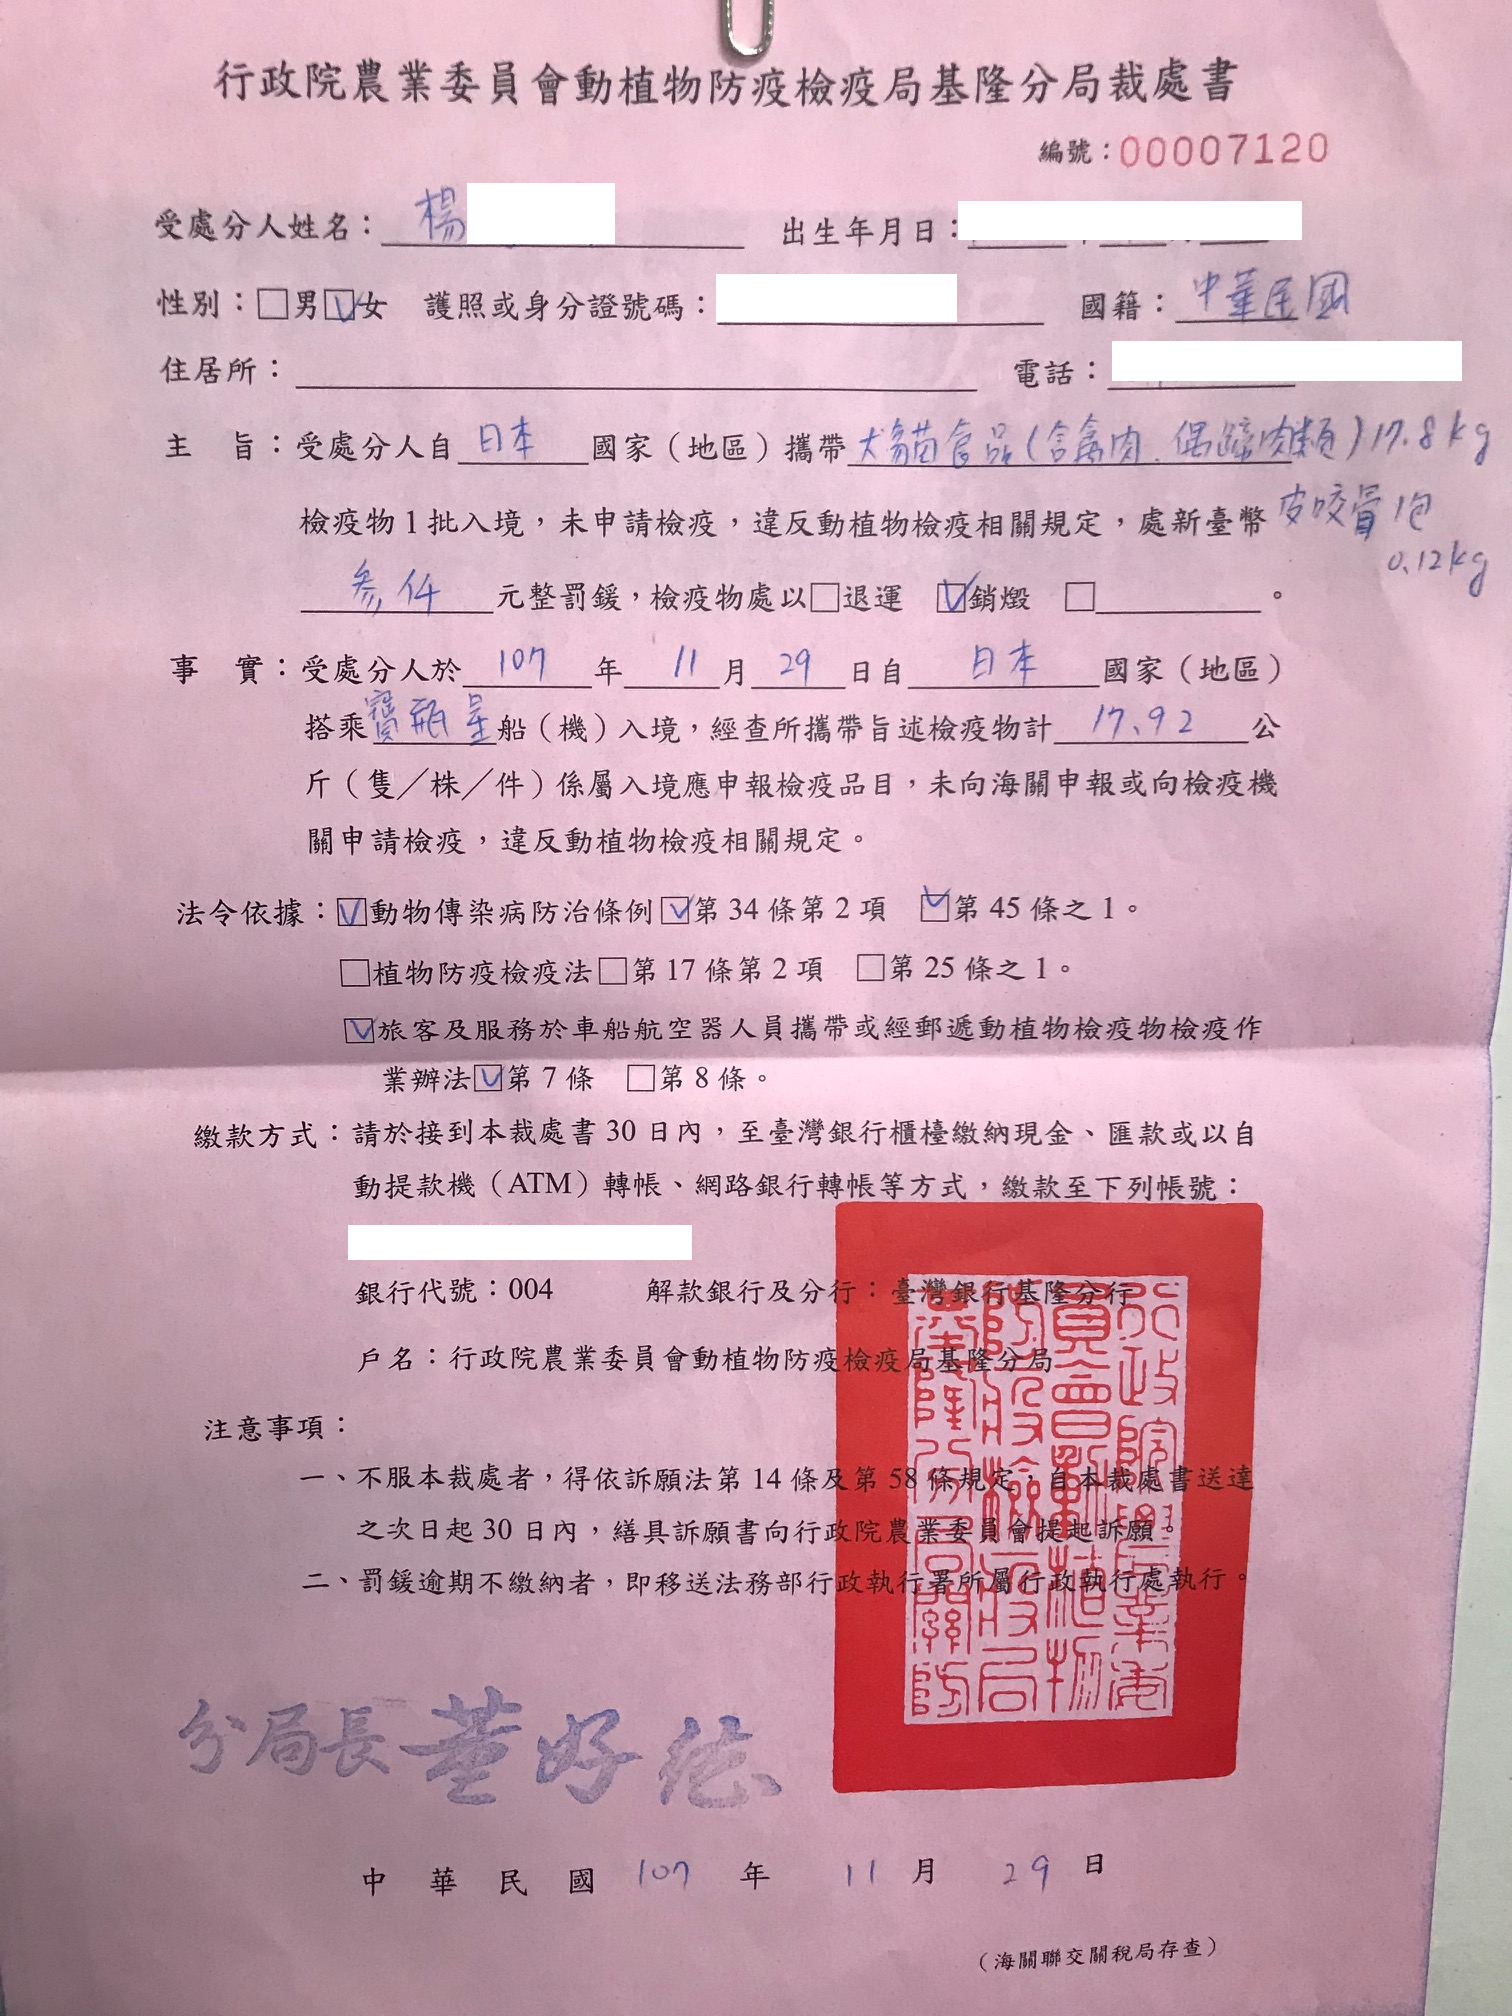 行政院農業委員會動植物防疫檢疫局基隆分局裁處書
編號：00007120
受處分人姓名：楊 出生年月日：
性別：□男☑女 護照或身分證號碼： 國籍：中華民國
住居所： 電話：
主 旨：受處分人自日本國家（地區）攜帶犬貓食品(含禽肉、偶蹄肉類)17.8kg
檢疫物1批入境，未申請檢疫，違反動植物檢疫相關規定，處新臺幣 皮咬骨1包
0.12kg
參仟元整罰鍰，檢疫物處以□退運 ☑銷燬 □ 。
事 實：受處分人於107年11月29日自日本國家（地區）
搭乘寶瓶星船（機）入境，經查所攜帶旨述檢疫物計17.92公
斤（隻／株／件）係屬入境應申報檢疫品目，未向海關申報或向檢疫機
關申請檢疫，違反動植物檢疫相關規定。
法令依據：☑動物傳染病防治條例☑第34條第2項 ☑第45條之1。
□植物防疫檢疫法□第17條第2項 □第25條之1。
☑旅客及服務於車船航空器人員攜帶或經郵遞動植物檢疫物檢疫作
業辦法☑第7條 □第8條。
繳款方式：請於接到本裁處書30日內，至臺灣銀行櫃檯繳納現金、匯款或以自
動提款機（ATM）轉帳、網路銀行轉帳等方式，繳款至下列帳號：
銀行代號：004 解款銀行及分行：臺灣銀行基隆分行
戶名：行政院農業委員會動植物防疫檢疫局基隆分局
注意事項：
一、不服本裁處者，得依訴願法第14條及第58條規定，自本裁處書送達
之次日起30日內，繕具訴願書向行政院農業委員會提起訴願。
二、罰鍰逾期不繳納者，即移送法務部行政執行署所屬行政執行處執行。
行政院農業委
員會動植物
防疫檢疫局
基隆分局關防
分局長董好德
中華民國107年11月29日
（海關聯交關稅局存查）